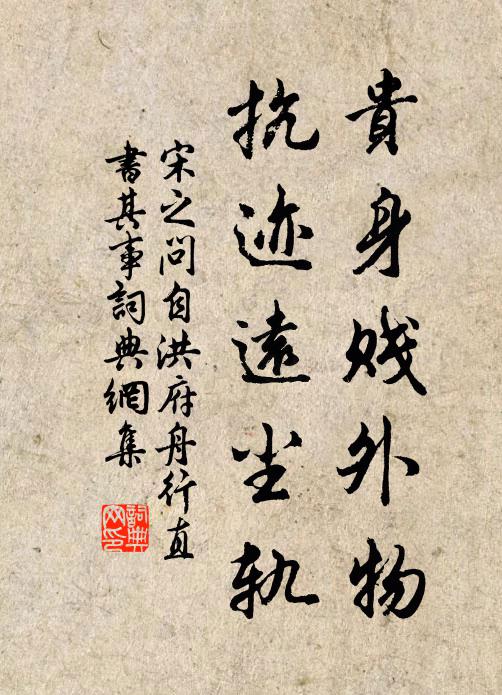 貴身賤外物
抗迹遠尘軌
宋之问自洪府舟行直
書其事詞典網集
詞典网印